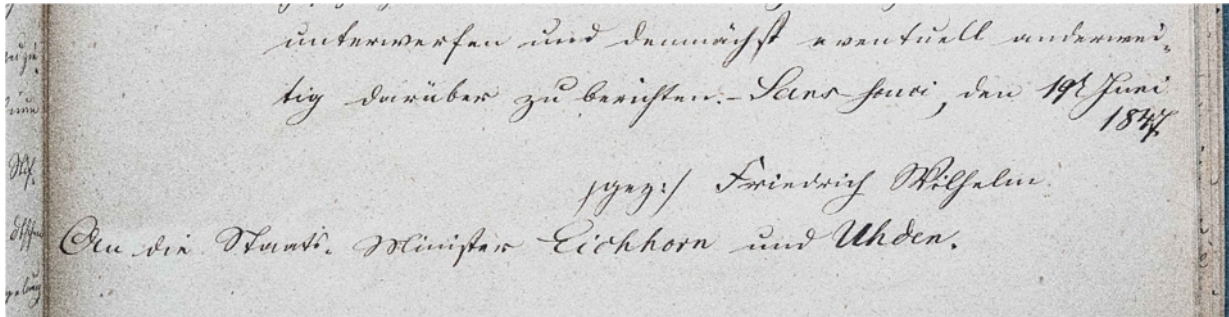 unterwerfen und demnächst eventuell anderwei-
tig darüber zu berichten. – Sans-souci, den 19t Juni
1847.
/gez:/ Friedrich Wilhelm.
An die Staats-Minister Eichhorn und Uhden.